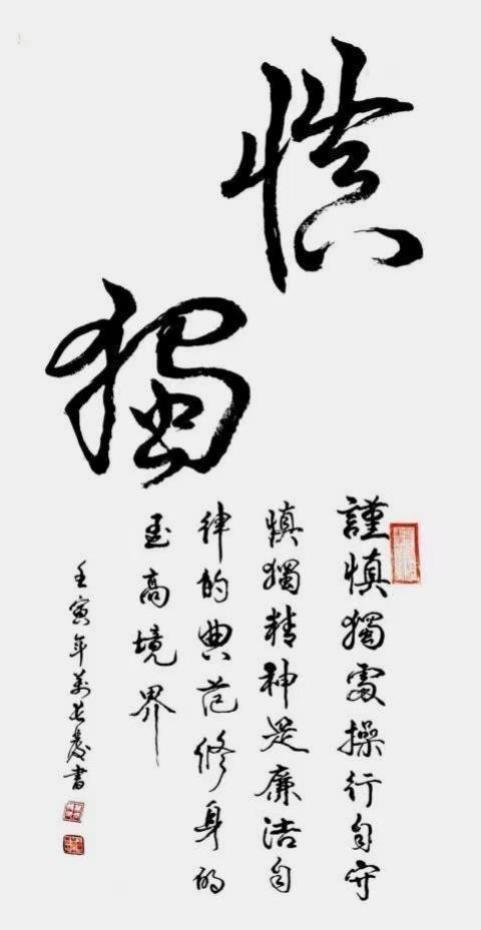 慎
獨
謹慎獨處操行自守
慎獨精神是廉洁自
律的典范修身的
至高境界
壬寅年書